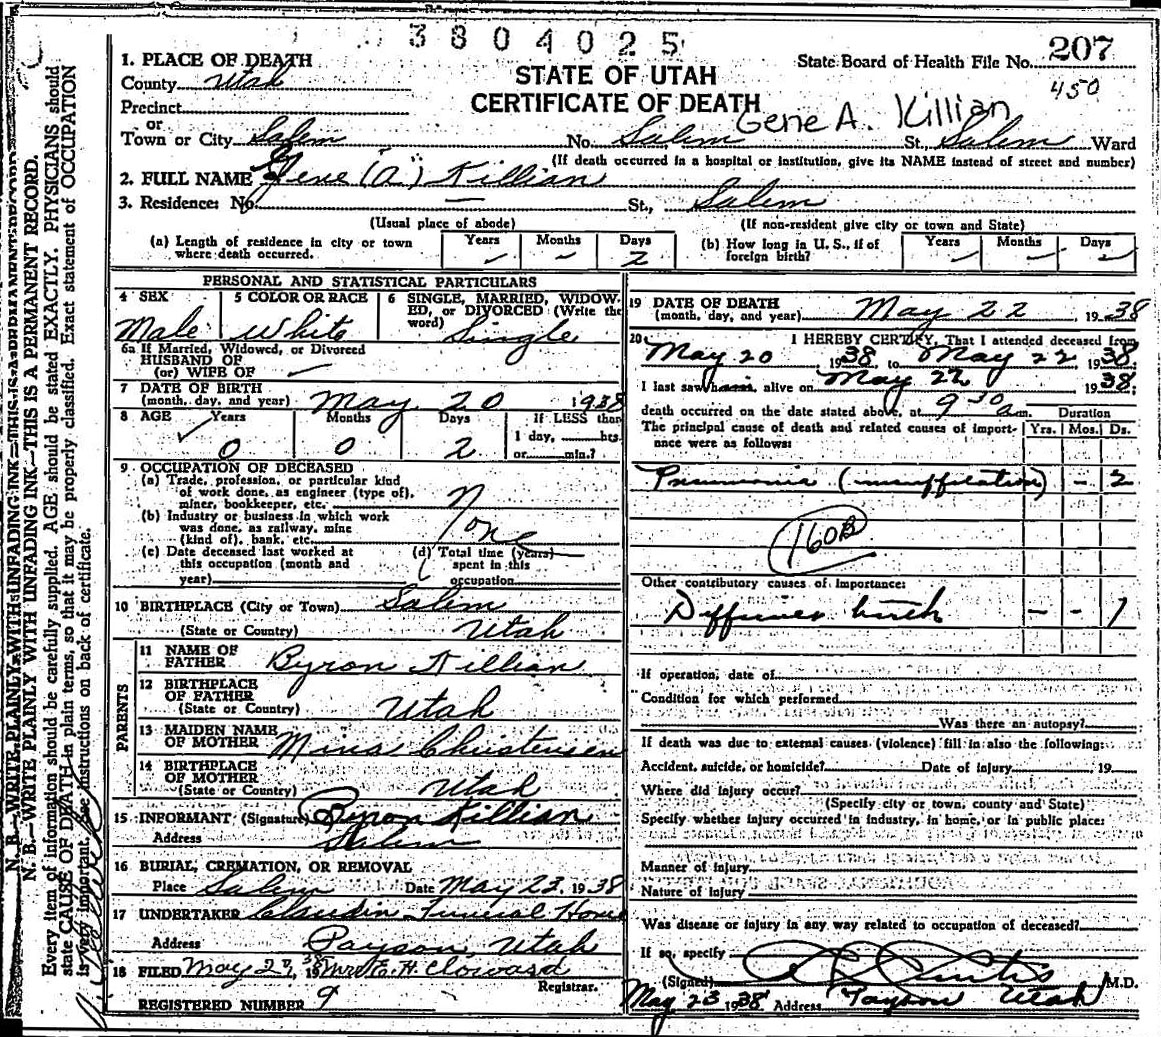 3804025
1. PLACE OF DEATH
STATE OF UTAH
CERTIFICATE OF DEATH
State Board of Health File No. 207
450
County Utah
Precinct
or
Gene A. Killian
Town or City Salem No. Salem St., Salem Ward
(If death occurred in a hospital or institution, give its NAME instead of street and number)
2. FULL NAME Gene (A.) Killian
3. Residence: No. — St., Salem
(Usual place of abode) (If non-resident give city or town and State)
(a) Length of residence in city or town where death occurred. Years – Months – Days 2
(b) How long in U. S., if of foreign birth? Years – Months – Days –
PERSONAL AND STATISTICAL PARTICULARS
4 SEX Male
5 COLOR OR RACE White
6 SINGLE, MARRIED, WIDOWED, or DIVORCED (Write the word) Single
6a If Married, Widowed, or Divorced
HUSBAND OF
(or) WIFE OF —
7 DATE OF BIRTH
(month, day, and year) May 20 1938
8 AGE Years 0 Months 0 Days 2
If LESS than
1 day, hrs.
or min.?
9 OCCUPATION OF DECEASED
(a) Trade, profession, or particular kind
of work done, as engineer (type of),
miner, bookkeeper, etc.
(b) Industry or business in which work
was done, as railway, mine
(kind of), bank, etc.
None
(c) Date deceased last worked at
this occupation (month and
year)
(d) Total time (years)
spent in this
occupation
10 BIRTHPLACE (City or Town) Salem
(State or Country) Utah
PARENTS
11 NAME OF
FATHER Byron Killian
12 BIRTHPLACE
OF FATHER
(State or Country) Utah
13 MAIDEN NAME
OF MOTHER Christensen
14 BIRTHPLACE
OF MOTHER
(State or Country) Utah
15 INFORMANT (Signature) Byron Killian
Address Salem
16 BURIAL, CREMATION, OR REMOVAL
Place Salem Date May 23 1938
17 UNDERTAKER Claudin Funeral Home
Address Payson, Utah
18 FILED May 27, 1938 Mrs E. H. Cloward
Registrar.
REGISTERED NUMBER 9
19 DATE OF DEATH
(month, day, and year) May 22 1938
20 I HEREBY CERTIFY, That I attended deceased from
May 20 1938 to May 22 1938
I last saw him alive on May 22 1938
death occurred on the date stated above, at 9 30 a m.
Duration
The principal cause of death and related causes of importance were as follows:
Yrs. Mos. Ds.
Pneumonia – 2
160B
Other contributory causes of importance:
birth – – 1
If operation, date of
Condition for which performed
Was there an autopsy?
If death was due to external causes (violence) fill in also the following:
Accident, suicide, or homicide? Date of injury 19
Where did injury occur?
(Specify city or town, county and State)
Specify whether injury occurred in industry, in home, or in public place:
Manner of injury
Nature of injury
Was disease or injury in any way related to occupation of deceased?
If so, specify
(Signed) Curtis M.D.
May 23 1938 Address Payson Utah
N. B.—WRITE PLAINLY WITH UNFADING INK—THIS IS A PERMANENT RECORD.
Every item of information should be carefully supplied. AGE should be stated EXACTLY. PHYSICIANS should
state CAUSE OF DEATH in plain terms, so that it may be properly classified. Exact statement of OCCUPATION
is very important. See instructions on back of certificate.